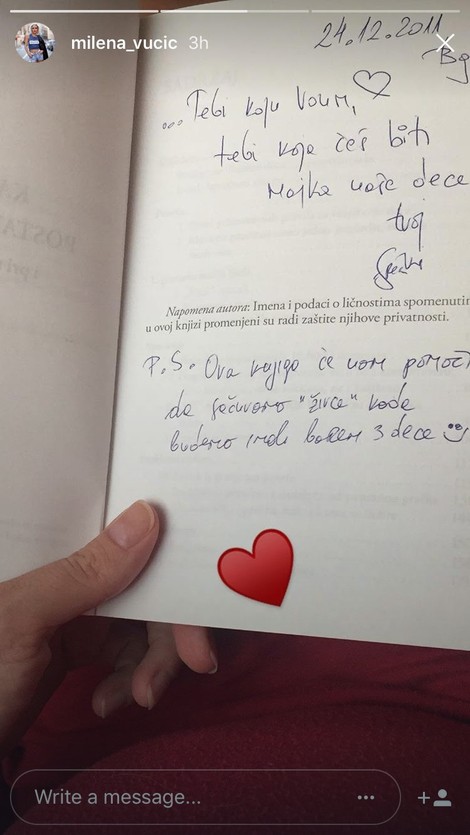 milena_vucic 3h
24.12.2011
Bg
...Tebi koju volim,
tebi koja ćeš biti
majka naše dece
tvoj
Napomena autora: Imena i podaci o ličnostima spomenutim
u ovoj knjizi promenjeni su radi zaštite njihove privatnosti.
P.S. Ova knjiga će nam pomoći
da sačuvamo "živce" kada
budemo imali barem 3 dece
Write a message...